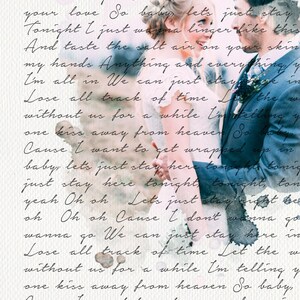 your love So baby lets just stay
Tonight I just wanna linger like this
And taste the salt air on your skin
my hand Anything and everything
I'm all in We can just stay
Lose all track of time Let the
without us for a while I'm telling
one kiss away from heaven So
Cause I want to get wrapped
baby, lets just stay here tonight
just stay here tonight, tonight,
yeah Oh oh Lets just stay
oh Oh oh Cause I dont wanna
wanna go We can just stay here
Lose all track of Let the
without us for a while I'm telling
one kiss away from heaven So baby,